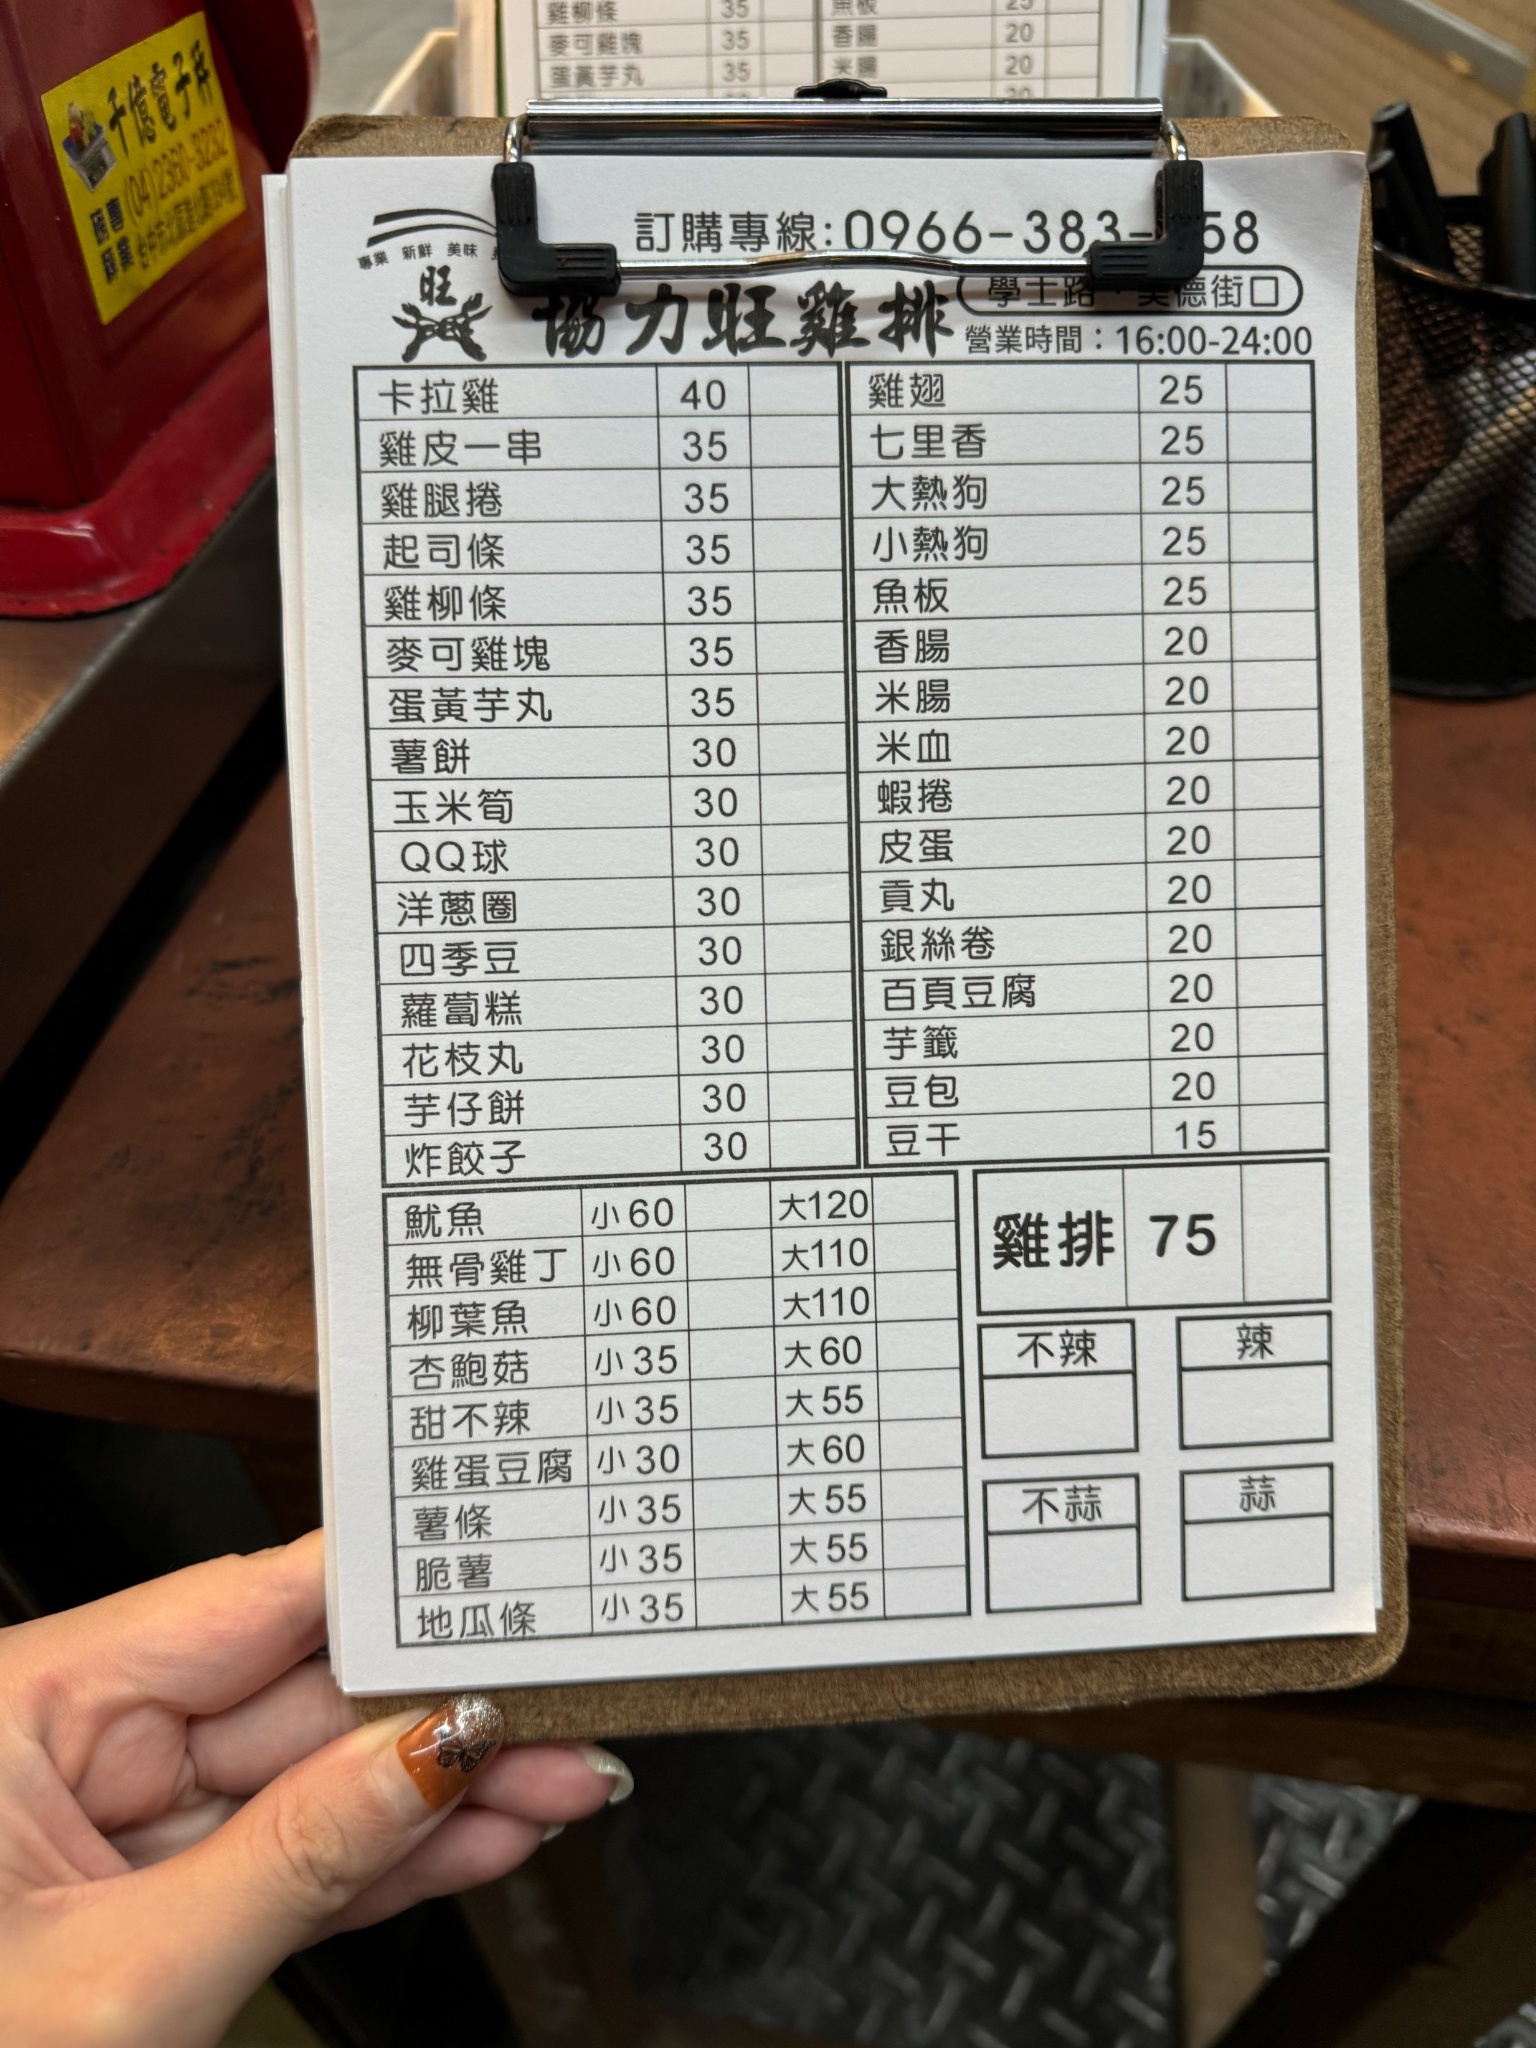 雞柳條 35 魚板 25
麥可雞塊 35 香腸 20
蛋黃芋丸 35 米腸 20
千億電子秤
(04)2380-3232
訂購專線:0966-383- 58
專業 新鮮 美味
旺
協力旺雞排
學士路 美德街口
營業時間：16:00-24:00
卡拉雞 40 雞翅 25
雞皮一串 35 七里香 25
雞腿捲 35 大熱狗 25
起司條 35 小熱狗 25
雞柳條 35 魚板 25
麥可雞塊 35 香腸 20
蛋黃芋丸 35 米腸 20
薯餅 30 米血 20
玉米筍 30 蝦捲 20
QQ球 30 皮蛋 20
洋蔥圈 30 貢丸 20
四季豆 30 銀絲卷 20
蘿蔔糕 30 百頁豆腐 20
花枝丸 30 芋籤 20
芋仔餅 30 豆包 20
炸餃子 30 豆干 15
魷魚 小60 大120
無骨雞丁 小60 大110
柳葉魚 小60 大110
杏鮑菇 小35 大60
甜不辣 小35 大55
雞蛋豆腐 小30 大60
薯條 小35 大55
脆薯 小35 大55
地瓜條 小35 大55
雞排 75
不辣 辣
不蒜 蒜